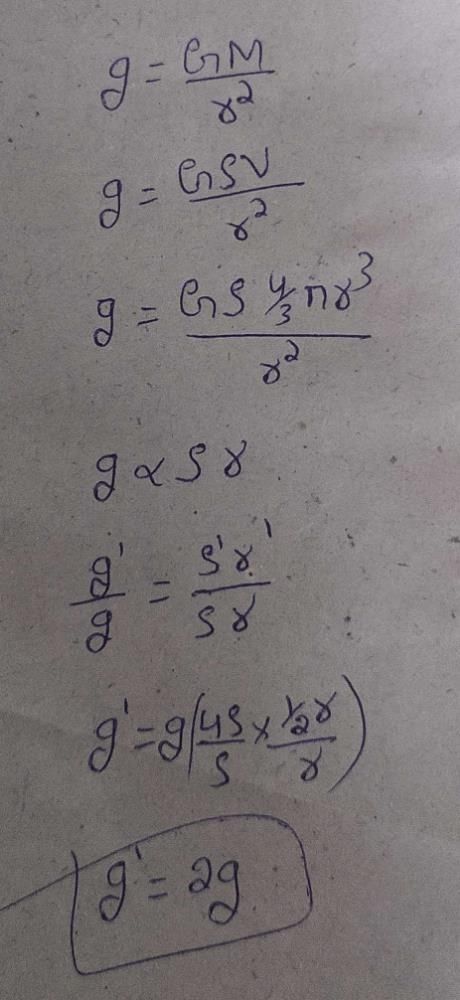 g = GM / r²
g = GρV / r²
g = Gρ 4/3 πr³ / r²
g ∝ ρ r
g' / g = ρ'r' / ρr
g' = g(4ρ/ρ × 1/2r / r)
g' = 2g